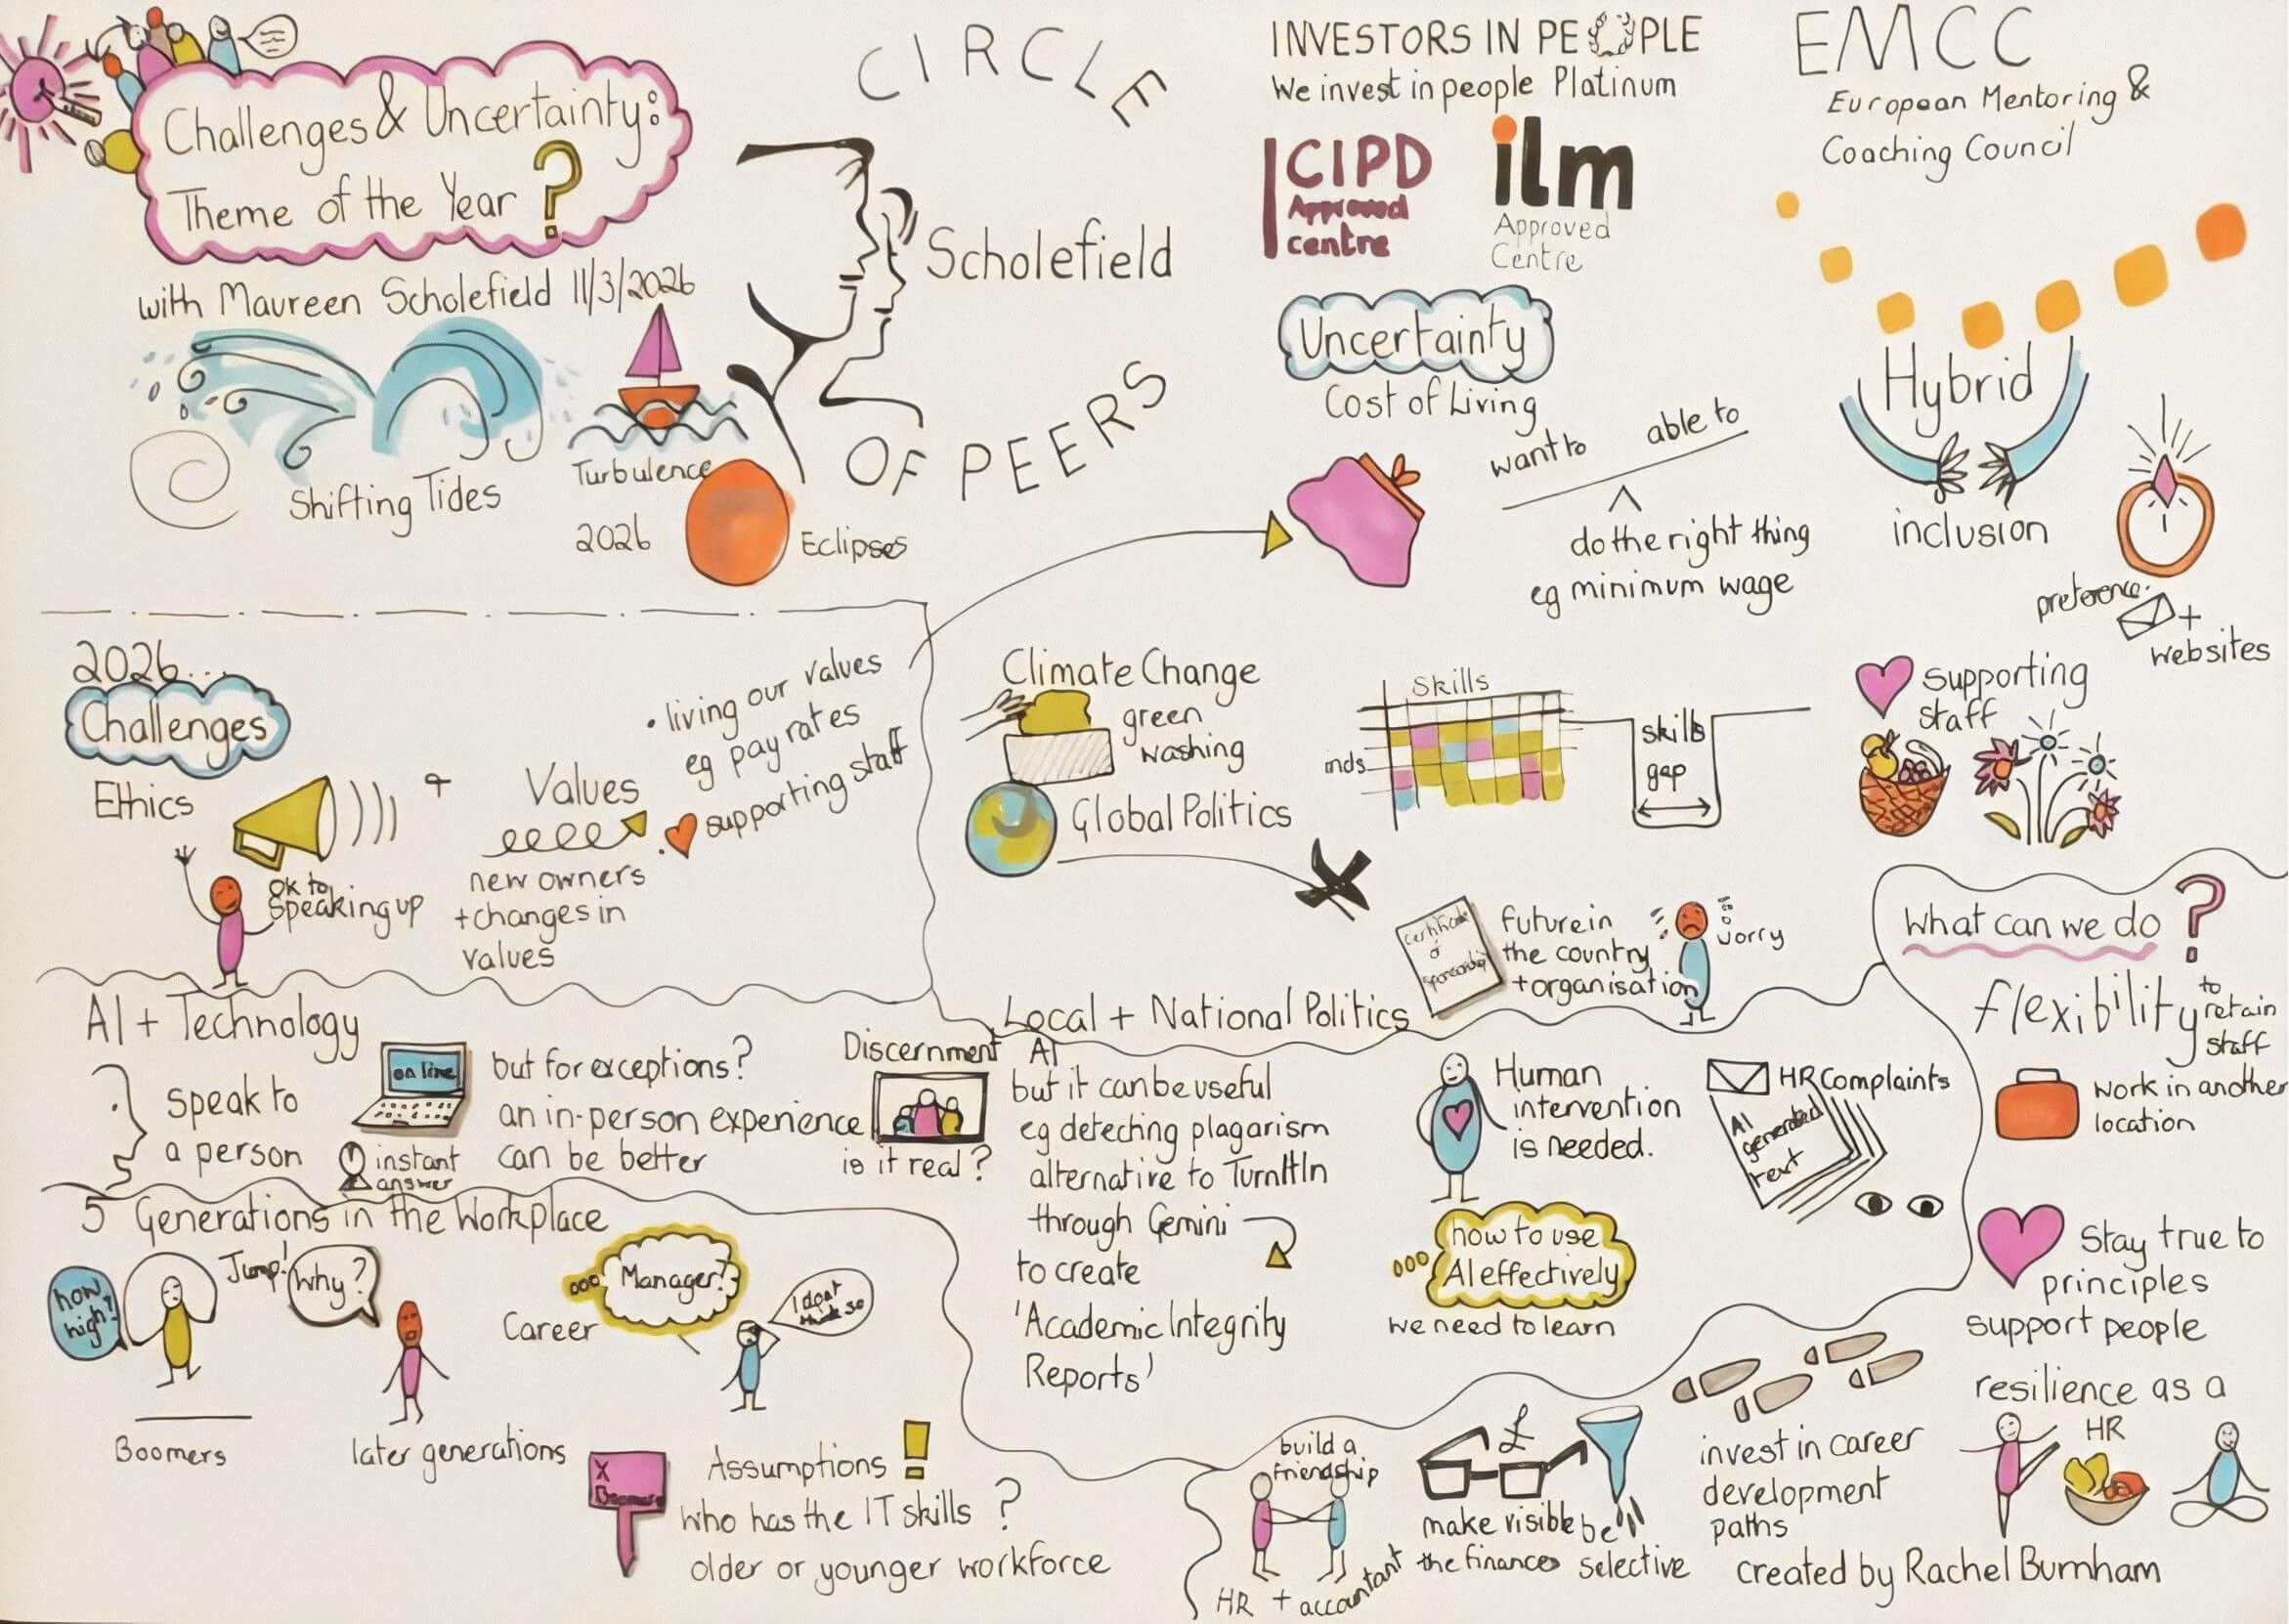 Challenges & Uncertainty:
Theme of the Year ?
with Maureen Scholefield 11/3/2026
Shifting Tides
Turbulence
2026
Eclipses
CIRCLE
Scholefield
OF PEERS
INVESTORS IN PEOPLE
We invest in people Platinum
CIPD
Approved
centre
ilm
Approved
Centre
EMCC
European Mentoring &
Coaching Council
Uncertainty
Cost of Living
want to able to
do the right thing
eg minimum wage
Hybrid
inclusion
preference.
+
websites
2026...
Challenges
Ethics
ok to
speaking up
+
Values
new owners
+ changes in
values
• living our values
eg pay rates
• supporting staff
Climate Change
green
washing
Global Politics
Skills
inds
skills
gap
supporting
staff
Certificate
of
sponsorship
future in
the country
+ organisation
worry
Local + National Politics
AI + Technology
speak to
a person
on line
instant
answer
but for exceptions?
an in-person experience
can be better
Discernment
is it real?
AI
but it can be useful
eg detecting plagarism
alternative to TurnItIn
through Gemini
to create
'Academic Integrity
Reports'
Human
intervention
is needed.
HR Complaints
AI
generated
text
how to use
AI effectively
we need to learn
5 Generations in the Workplace
how
high?
Jump!
Why?
Boomers
later generations
Career
Manager?
I dont
think so
X
Assumptions !
who has the IT skills ?
older or younger workforce
What can we do ?
flexibility to
retain
staff
work in another
location
Stay true to
principles
support people
resilience as a
HR
build a
friendship
HR + accountant
£
make visible
the finances
be
selective
invest in career
development
paths
created by Rachel Burnham